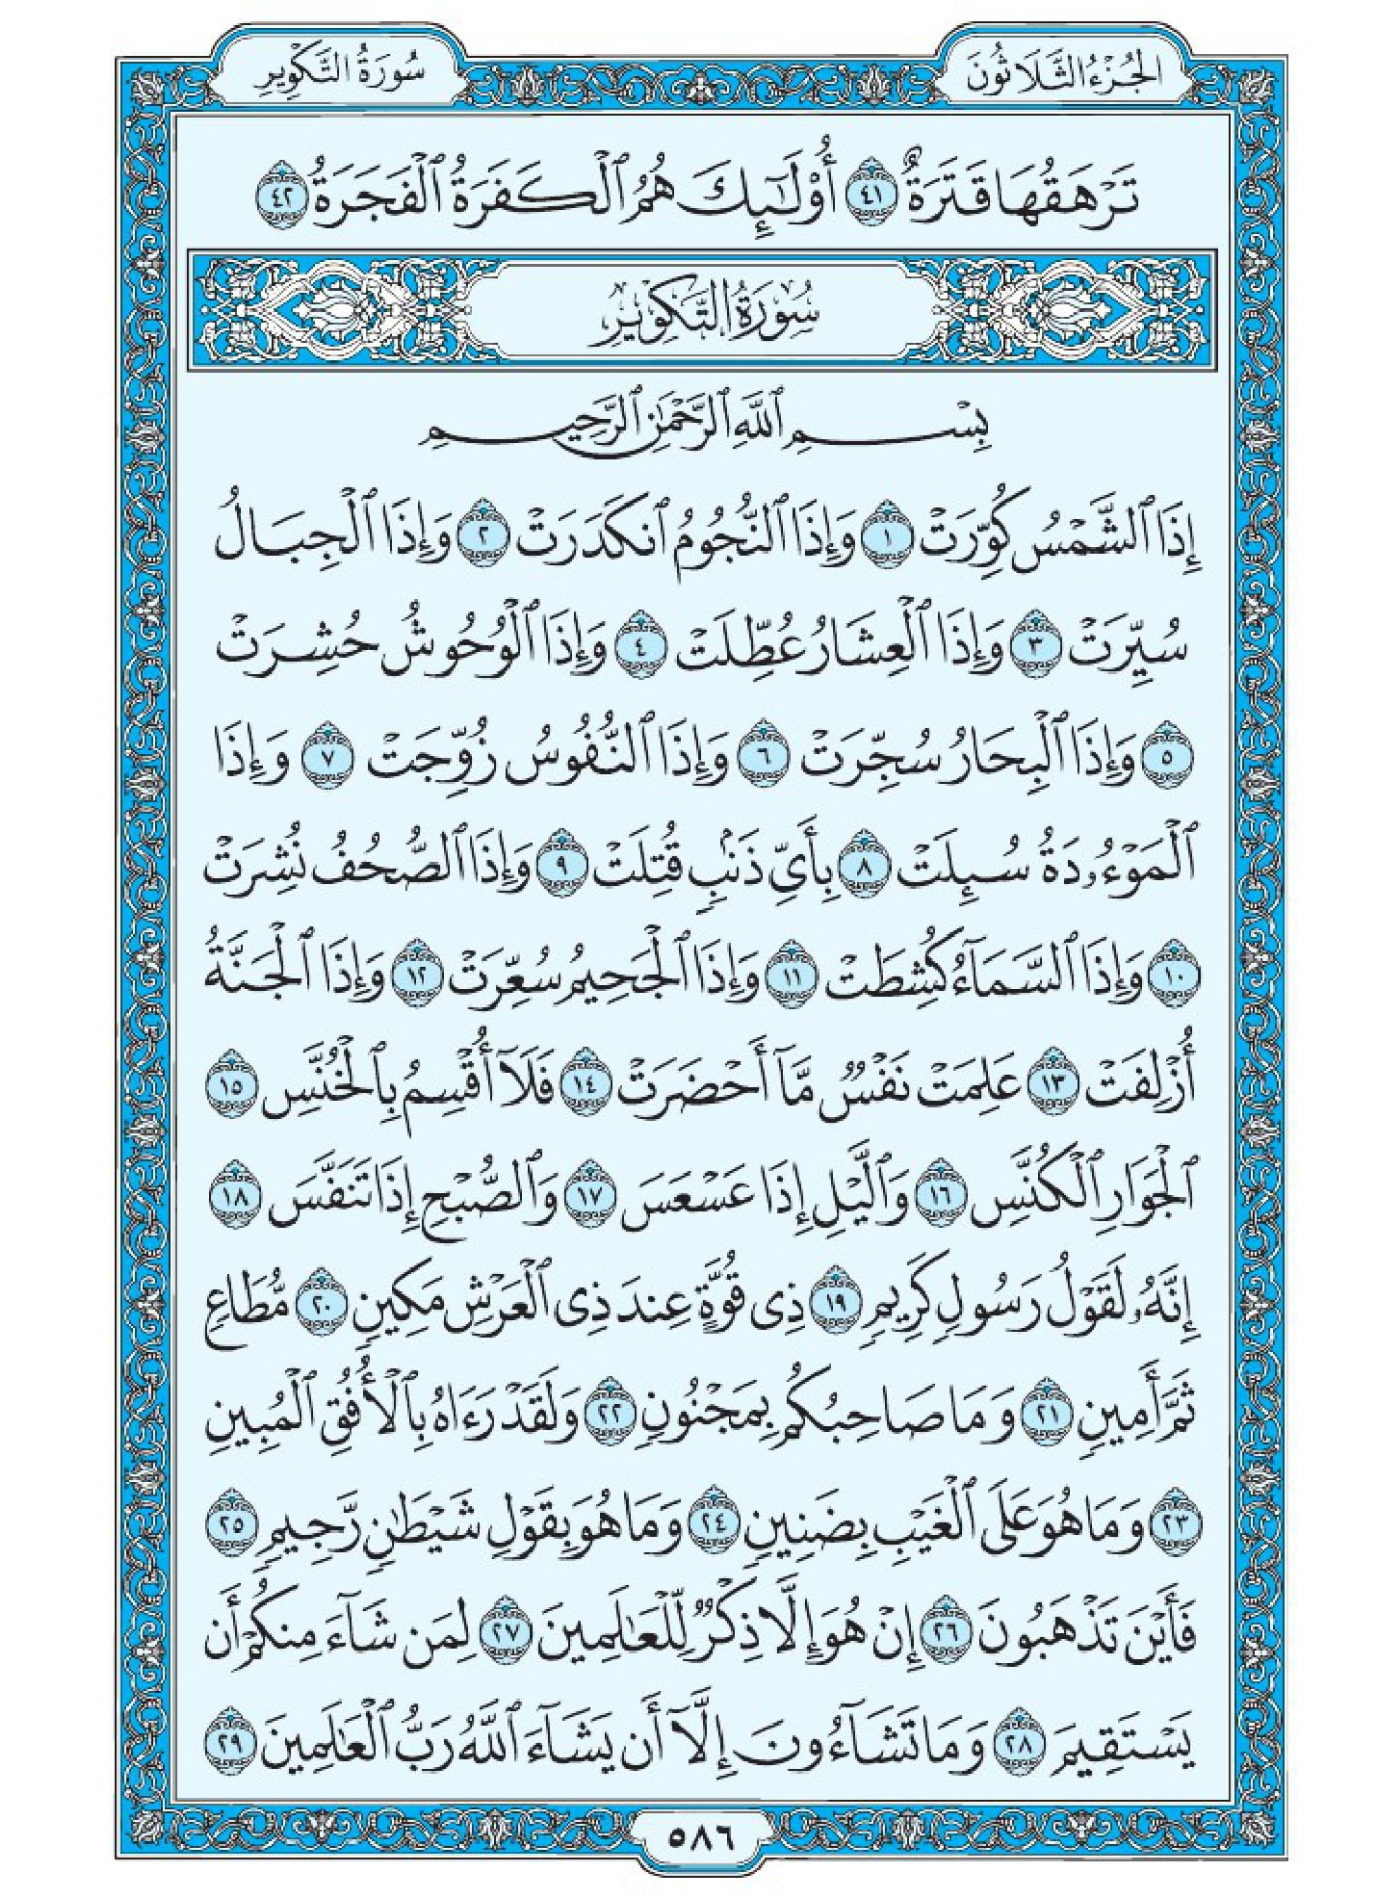 الجُزْءُ الثَّلَاثُونَ
سُورَةُ التَّكْوِيرِ
تَرْهَقُهَا قَتَرَةٌ ٤١ أُوْلَـٰٓئِكَ هُمُ ٱلْكَفَرَةُ ٱلْفَجَرَةُ ٤٢
سُورَةُ التَّكْوِيرِ
بِسْمِ ٱللَّهِ ٱلرَّحْمَـٰنِ ٱلرَّحِيمِ
إِذَا ٱلشَّمْسُ كُوِّرَتْ ١ وَإِذَا ٱلنُّجُومُ ٱنكَدَرَتْ ٢ وَإِذَا ٱلْجِبَالُ
سُيِّرَتْ ٣ وَإِذَا ٱلْعِشَارُ عُطِّلَتْ ٤ وَإِذَا ٱلْوُحُوشُ حُشِرَتْ
٥ وَإِذَا ٱلْبِحَارُ سُجِّرَتْ ٦ وَإِذَا ٱلنُّفُوسُ زُوِّجَتْ ٧ وَإِذَا
ٱلْمَوْءُۥدَةُ سُئِلَتْ ٨ بِأَىِّ ذَنۢبٍ قُتِلَتْ ٩ وَإِذَا ٱلصُّحُفُ نُشِرَتْ
١٠ وَإِذَا ٱلسَّمَآءُ كُشِطَتْ ١١ وَإِذَا ٱلْجَحِيمُ سُعِّرَتْ ١٢ وَإِذَا ٱلْجَنَّةُ
أُزْلِفَتْ ١٣ عَلِمَتْ نَفْسٌ مَّآ أَحْضَرَتْ ١٤ فَلَآ أُقْسِمُ بِٱلْخُنَّسِ ١٥
ٱلْجَوَارِ ٱلْكُنَّسِ ١٦ وَٱلَّيْلِ إِذَا عَسْعَسَ ١٧ وَٱلصُّبْحِ إِذَا تَنَفَّسَ ١٨
إِنَّهُۥ لَقَوْلُ رَسُولٍ كَرِيمٍ ١٩ ذِى قُوَّةٍ عِندَ ذِى ٱلْعَرْشِ مَكِينٍ ٢٠ مُّطَاعٍ
ثَمَّ أَمِينٍ ٢١ وَمَا صَاحِبُكُم بِمَجْنُونٍ ٢٢ وَلَقَدْ رَءَاهُ بِٱلْأُفُقِ ٱلْمُبِينِ
٢٣ وَمَا هُوَ عَلَى ٱلْغَيْبِ بِضَنِينٍ ٢٤ وَمَا هُوَ بِقَوْلِ شَيْطَـٰنٍ رَّجِيمٍ ٢٥
فَأَيْنَ تَذْهَبُونَ ٢٦ إِنْ هُوَ إِلَّا ذِكْرٌ لِّلْعَـٰلَمِينَ ٢٧ لِمَن شَآءَ مِنكُمْ أَن
يَسْتَقِيمَ ٢٨ وَمَا تَشَآءُونَ إِلَّآ أَن يَشَآءَ ٱللَّهُ رَبُّ ٱلْعَـٰلَمِينَ ٢٩
٥٨٦